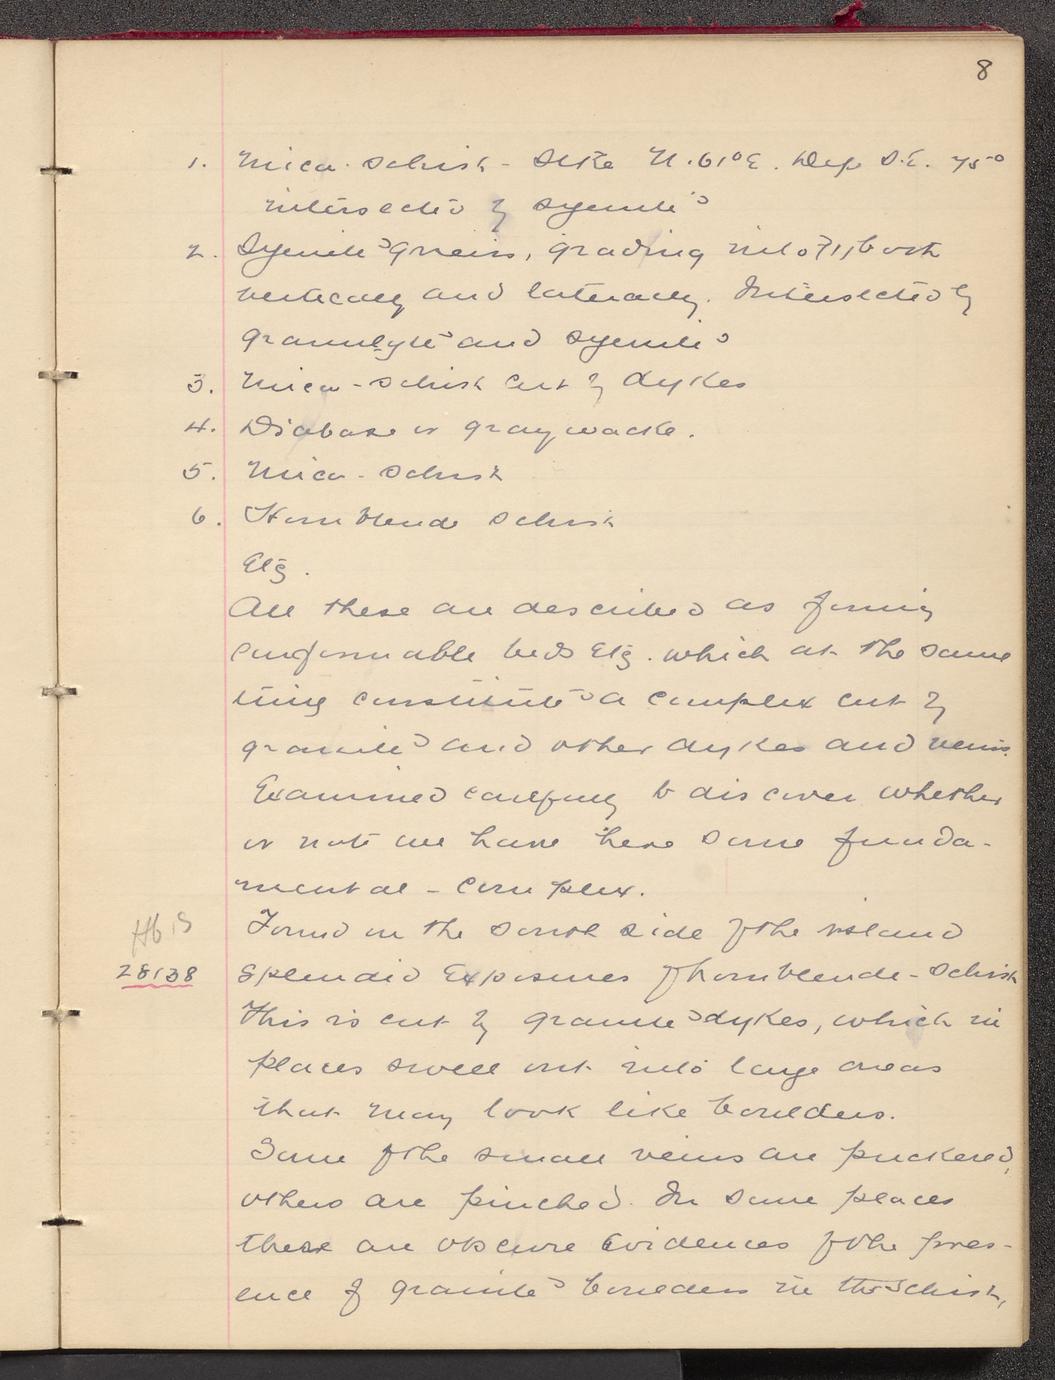 8
1. Mica-schist - Stke N.61°E. Dip S.E. 75°
intersected by syenite
2. Syenite Gneiss, grading into 71, both
vertically and laterally. Intersected by
granulyte and syenite
3. Mica-schist cut by dykes
4. Diabase or graywacke.
5. Mica-schist
6. Hornblende schist
Etc.
All these are described as forming
conformable beds Etc. which at the same
time constitute a complex cut by
granite and other dykes and veins.
Examined carefully to discover whether
or not we have here some funda-
mental-complex.
Found on the south side of the island
Hb S
28138 splendid Exposures of hornblende-schist
This is cut by granite dykes, which in
places swell out into large areas
that may look like boulders.
Some of the small veins are puckered,
others are pinched. In some places
there are obscure Evidences of the pres-
ence of granite boulders in the schist,